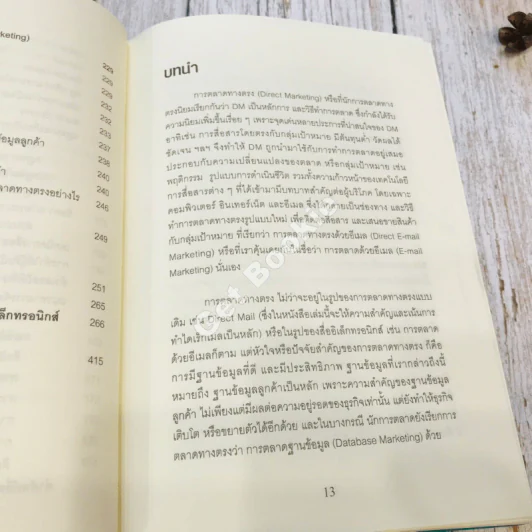 rketing)
229
229
229
232
233
237
238
240
240
246
249
251
265
266
415
้อมูลลูกค้า
ำ
ลาดทางตรงอย่างไร
ล็กทรอนิกส์
บทนำ
การตลาดทางตรง (Direct Marketing) หรือที่นักการตลาดทาง
ตรงนิยมเรียกกันว่า DM เป็นหลักการ และวิธีทำการตลาด ซึ่งกำลังได้รับ
ความนิยมเพิ่มขึ้นเรื่อย ๆ เพราะจุดเด่นหลายประการที่น่าสนใจของ DM
อาทิเช่น การสื่อสารโดยตรงกับกลุ่มเป้าหมาย มีต้นทุนต่ำ วัดผลได้
ชัดเจน ฯลฯ จึงทำให้ DM ถูกนำมาใช้กับการทำการตลาดอยู่เสมอ
ประกอบกับความเปลี่ยนแปลงของตลาด หรือกลุ่มเป้าหมาย เช่น
พฤติกรรม รูปแบบการดำเนินชีวิต รวมทั้งความก้าวหน้าของเทคโนโลยี
การสื่อสารต่าง ๆ ที่ได้เข้ามามีบทบาทสำคัญต่อผู้บริโภค โดยเฉพาะ
คอมพิวเตอร์ อินเทอร์เน็ต และอีเมล ซึ่งได้กลายเป็นช่องทาง และวิธี
ทำการตลาดทางตรงรูปแบบใหม่ เพื่อติดต่อสื่อสาร และเสนอขายสินค้า
กับกลุ่มเป้าหมาย ที่เรียกว่า การตลาดทางตรงด้วยอีเมล (Direct E-mail
Marketing) หรือที่เราคุ้นเคยกันในชื่อว่า การตลาดด้วยอีเมล (E-mail
Marketing) นั่นเอง
การตลาดทางตรง ไม่ว่าจะอยู่ในรูปของการตลาดทางตรงแบบ
เดิม เช่น Direct Mail (ซึ่งในหนังสือเล่มนี้จะให้ความสำคัญและเน้นการ
ทำไดเร็กเมลเป็นหลัก) หรือในรูปของสื่ออิเล็กทรอนิกส์ เช่น การตลาด
ด้วยอีเมลก็ตาม แต่หัวใจหรือปัจจัยสำคัญของการตลาดทางตรง ก็คือ
การมีฐานข้อมูลที่ดี และมีประสิทธิภาพ ฐานข้อมูลที่เรากล่าวถึงนี้
หมายถึง ฐานข้อมูลลูกค้าเป็นหลัก เพราะความสำคัญของฐานข้อมูล
ลูกค้า ไม่เพียงแต่มีผลต่อความอยู่รอดของธุรกิจเท่านั้น แต่ยังทำให้ธุรกิจ
เติบโต หรือขยายตัวได้อีกด้วย และในบางกรณี นักการตลาดยังเรียกการ
ตลาดทางตรงว่า การตลาดฐานข้อมูล (Database Marketing) ด้วย
13
Get Bookie